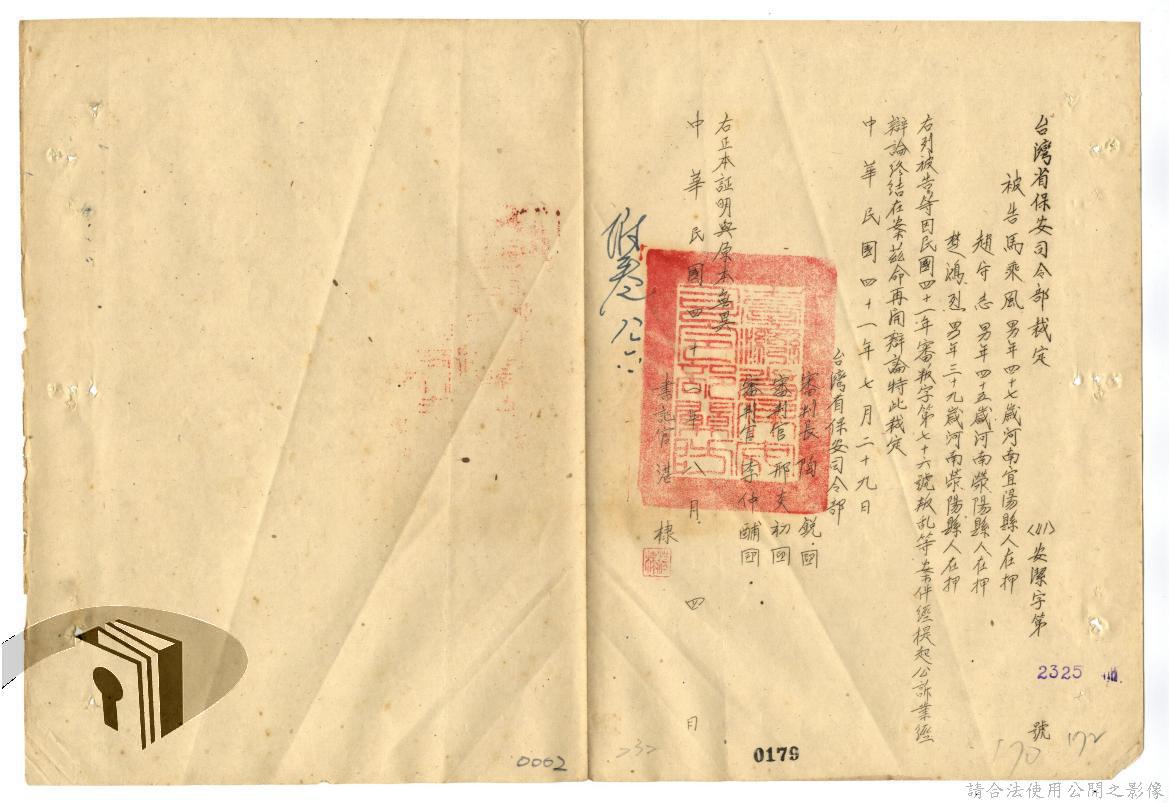 台灣省保安司令部裁定 (41)安潔字第 2325 號
被告馬乘風 男年四十七歲河南宜陽縣人在押
趙守志 男年四十五歲河南滎陽縣人在押
楚鴻烈 男年三十九歲河南滎陽縣人在押
右列被告等因民國四十一年審叛字第七十六號叛乱等案件經提起公訴業經
辯論終結在案茲命再開辯論特此裁定
中華民國四十一年七月二十九日
台灣省保安司令部
審判長 陶 銳 囬
審判官 邢炎初 囬
審判官 李仲酺 囬
右正本証明與原本無異
中華民國四十一年八月四日
書記官 湛 棣
附卷 八六
170 172
232
0179
0002
請合法使用公開之影像